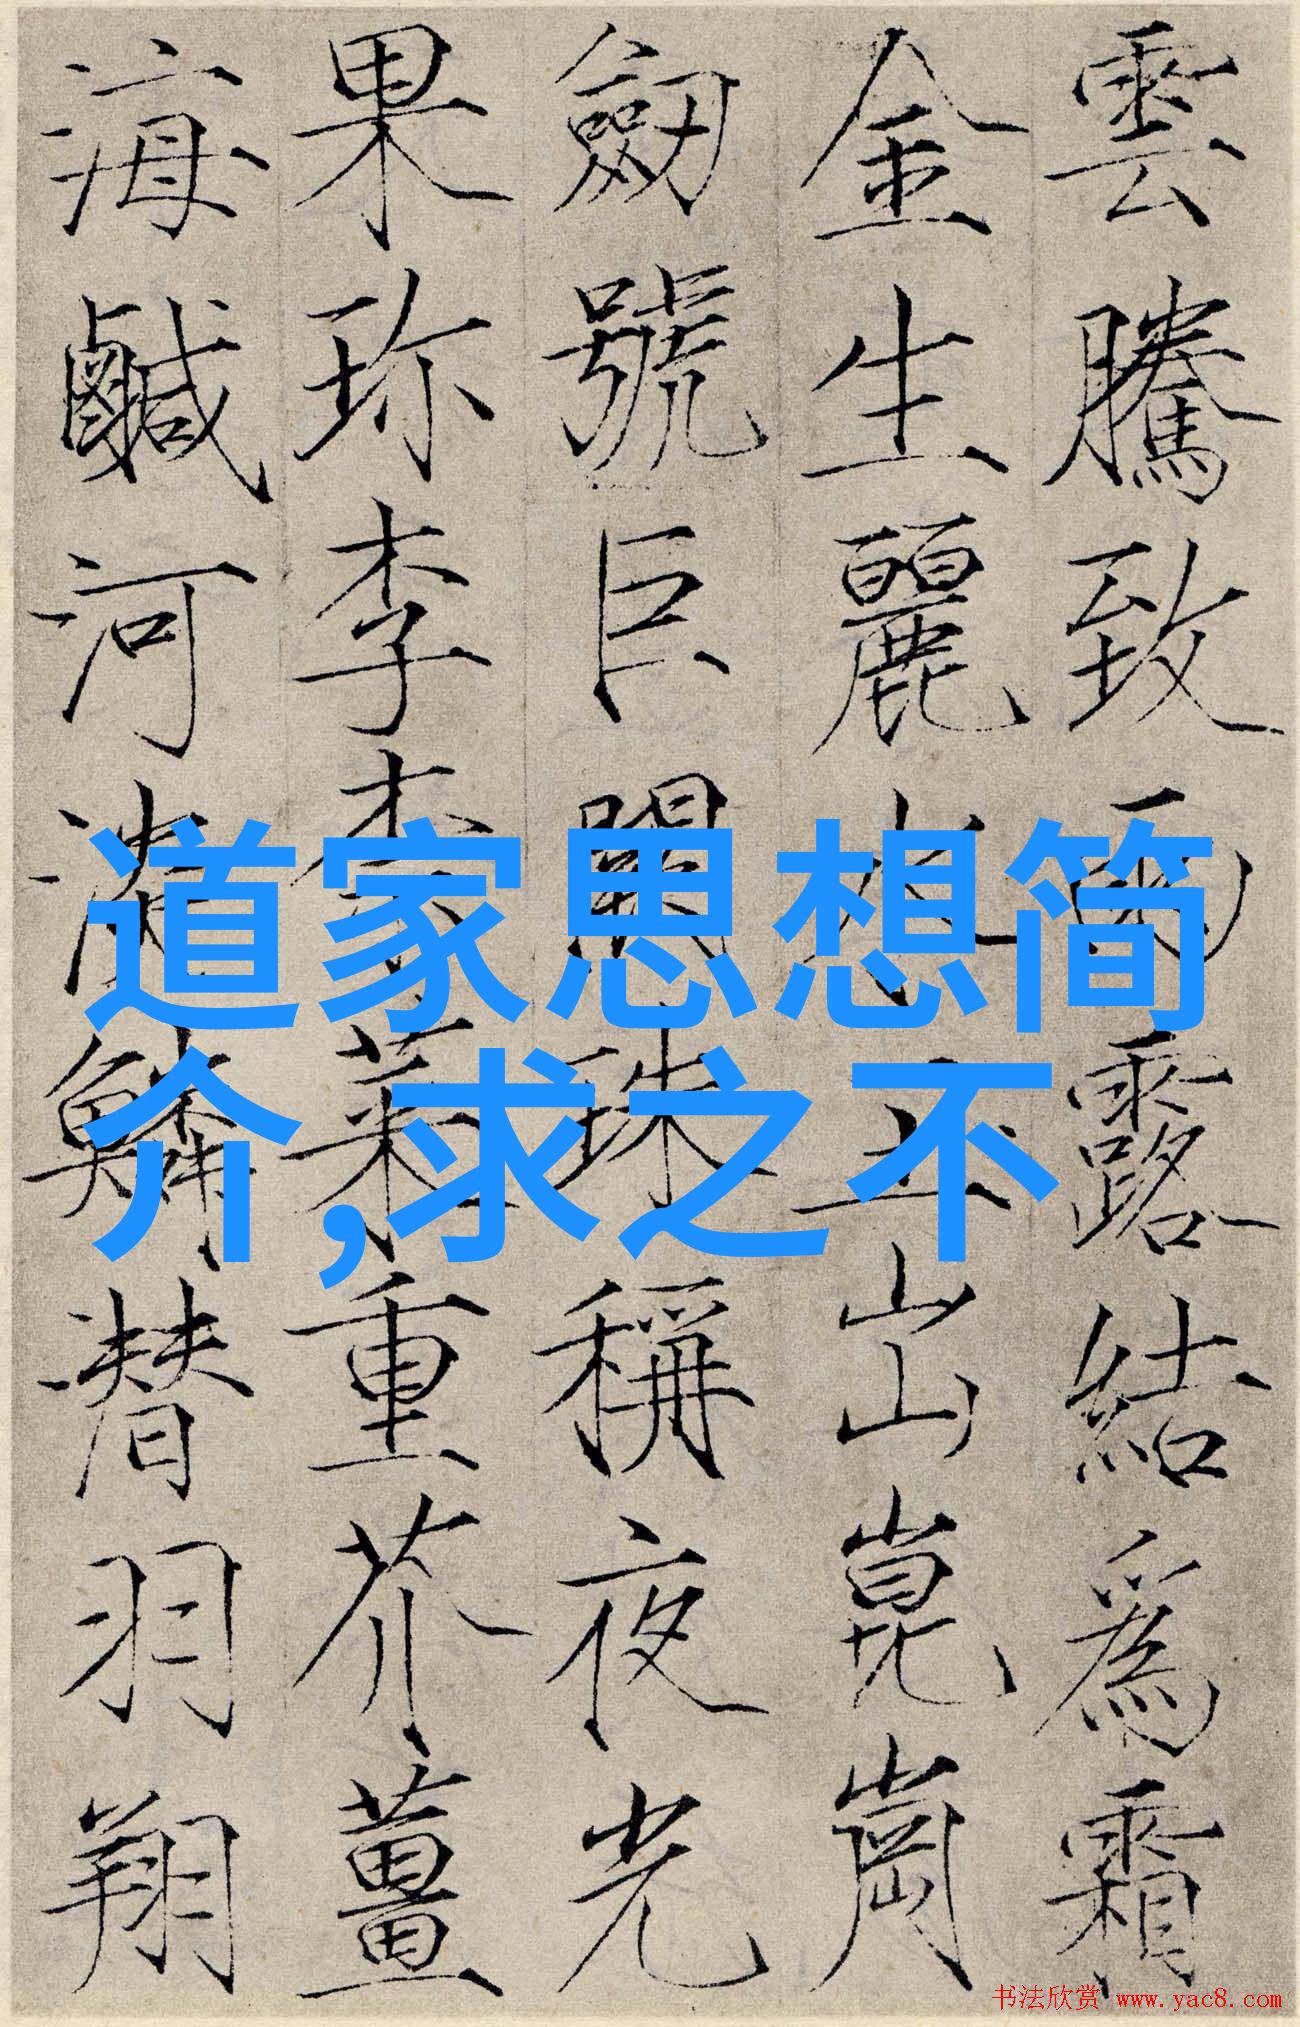 雲騰致雨露結爲霜
金生麗水玉出崑崗
劒號巨闕珠稱夜光
果珎李柰菜重芥薑
海鹹河淡鱗潜羽翔
道家思想简
介,求之不
书法欣赏 www.yac8.com